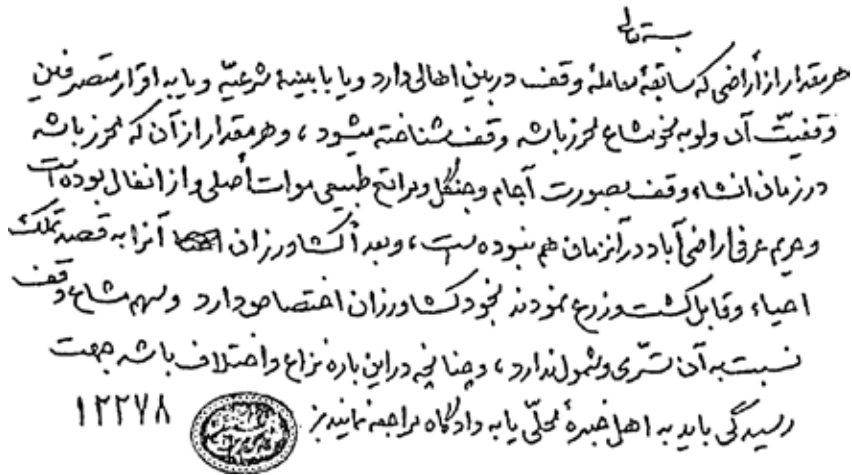 بسمه تعالی
هر مقدار از أراضی که سابقهٔ معاملهٔ وقف در بین اهالی دارد و یا با بینهٔ شرعیّه و یا به اقرار متصرفین
وقفیّت آن ولو به نحو مشاع محرز باشد وقف شناخته میشود ، و هر مقدار از آن که محرز باشد
در زمان انشاء وقف بصورت آجام و جنگل و مراتع طبیعی موات أصلی و از انفال بوده است
و حریم عرفی اراضی آباد در آنزمان هم نبوده است ، و بعداً کشاورزان آنرا به قصد تملک
احیاء و قابل کشت و زرع نمودند بخود کشاورزان اختصاص دارد و سهم مشاع وقف
نسبت به آن تسرّی و شمول ندارد ، و چنانچه در این باره نزاع و اختلاف باشد جهت
رسیدگی باید به اهل خبرهٔ محلّی یا به دادگاه مراجعه نمایند
۱۲۲۷۸